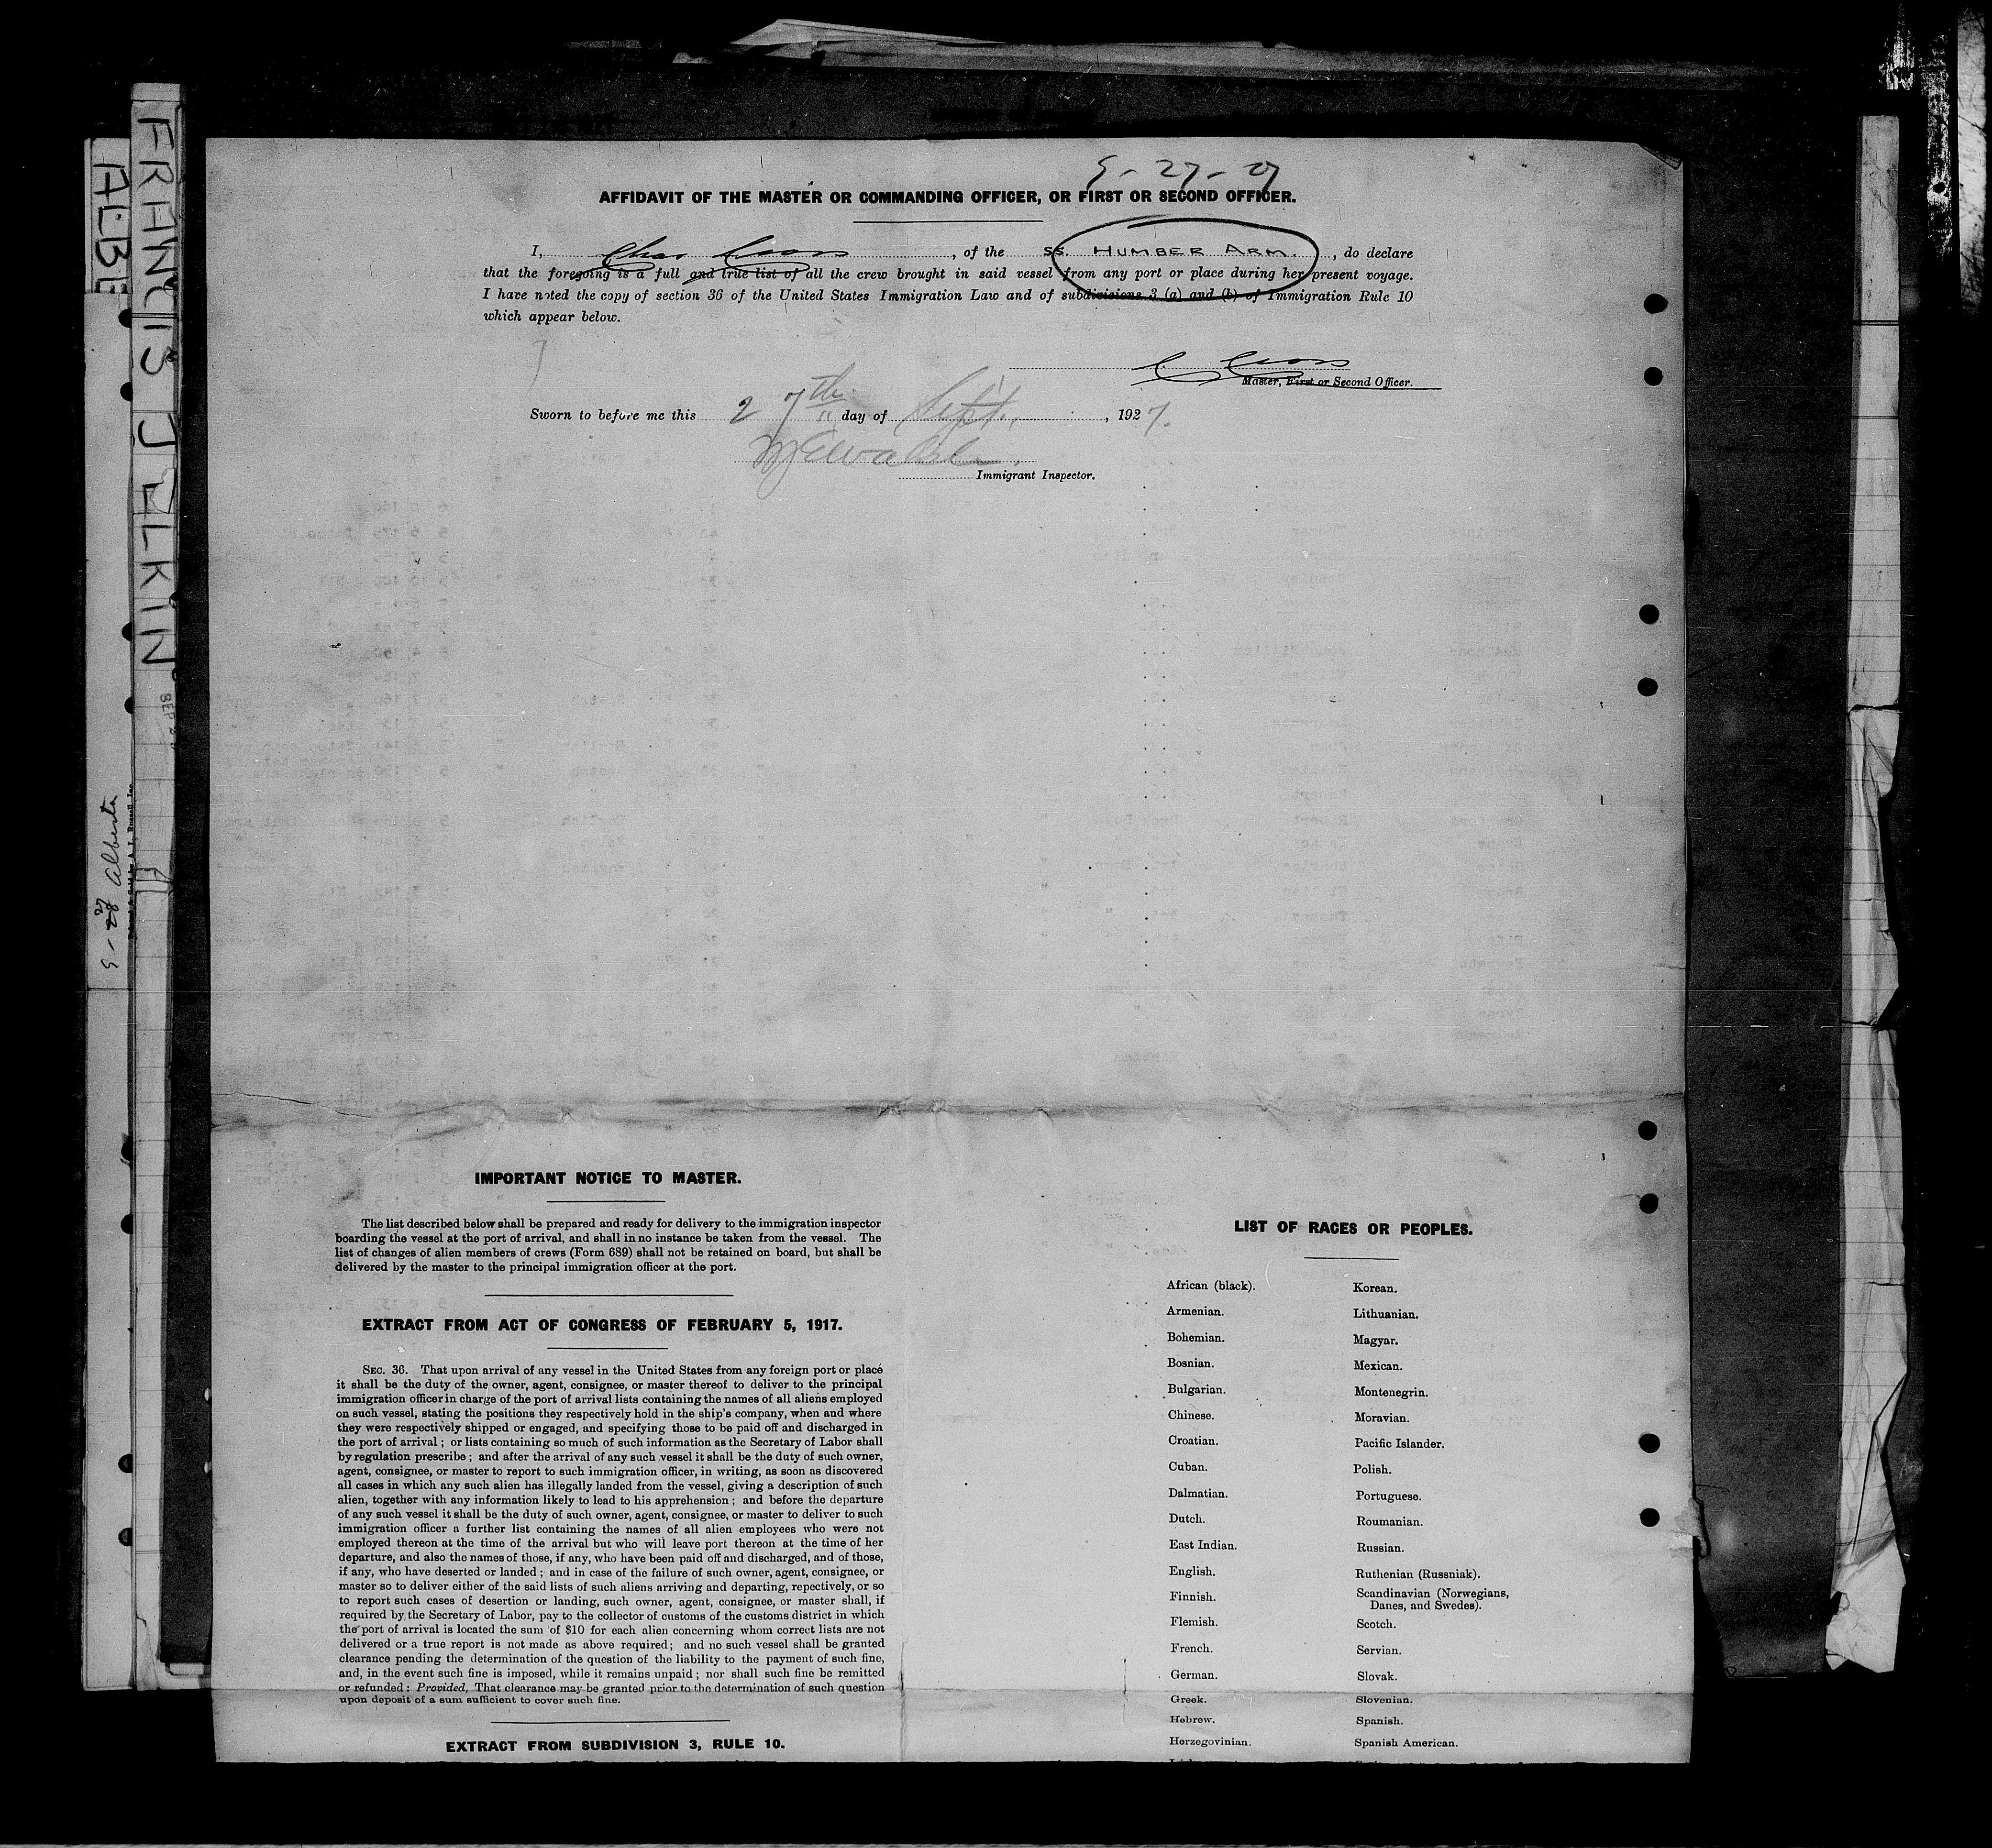 9-27-27
AFFIDAVIT OF THE MASTER OR COMMANDING OFFICER, OR FIRST OR SECOND OFFICER.
I, Chas , of the SS. HUMBER ARM. , do declare
that the foregoing is a full and true list of all the crew brought in said vessel from any port or place during her present voyage.
I have noted the copy of section 36 of the United States Immigration Law and of subdivisions 3 (a) and (b) of Immigration Rule 10
which appear below.
Master, First or Second Officer.
Sworn to before me this 27th day of Sept. , 1927.
Immigrant Inspector.
IMPORTANT NOTICE TO MASTER.
The list described below shall be prepared and ready for delivery to the immigration inspector
boarding the vessel at the port of arrival, and shall in no instance be taken from the vessel. The
list of changes of alien members of crews (Form 689) shall not be retained on board, but shall be
delivered by the master to the principal immigration officer at the port.
EXTRACT FROM ACT OF CONGRESS OF FEBRUARY 5, 1917.
SEC. 36. That upon arrival of any vessel in the United States from any foreign port or place
it shall be the duty of the owner, agent, consignee, or master thereof to deliver to the principal
immigration officer in charge of the port of arrival lists containing the names of all aliens employed
on such vessel, stating the positions they respectively hold in the ship's company, when and where
they were respectively shipped or engaged, and specifying those to be paid off and discharged in
the port of arrival; or lists containing so much of such information as the Secretary of Labor shall
by regulation prescribe; and after the arrival of any such vessel it shall be the duty of such owner,
agent, consignee, or master to report to such immigration officer, in writing, as soon as discovered
all cases in which any such alien has illegally landed from the vessel, giving a description of such
alien, together with any information likely to lead to his apprehension; and before the departure
of any such vessel it shall be the duty of such owner, agent, consignee, or master to deliver to such
immigration officer a further list containing the names of all alien employees who were not
employed thereon at the time of the arrival but who will leave port thereon at the time of her
departure, and also the names of those, if any, who have been paid off and discharged, and of those,
if any, who have deserted or landed; and in case of the failure of such owner, agent, consignee, or
master so to deliver either of the said lists of such aliens arriving and departing, repectively, or so
to report such cases of desertion or landing, such owner, agent, consignee, or master shall, if
required by the Secretary of Labor, pay to the collector of customs of the customs district in which
the port of arrival is located the sum of $10 for each alien concerning whom correct lists are not
delivered or a true report is not made as above required; and no such vessel shall be granted
clearance pending the determination of the question of the liability to the payment of such fine,
and, in the event such fine is imposed, while it remains unpaid; nor shall such fine be remitted
or refunded: Provided, That clearance may be granted prior to the determination of such question
upon deposit of a sum sufficient to cover such fine.
EXTRACT FROM SUBDIVISION 3, RULE 10.
LIST OF RACES OR PEOPLES.
African (black).
Armenian.
Bohemian.
Bosnian.
Bulgarian.
Chinese.
Croatian.
Cuban.
Dalmatian.
Dutch.
East Indian.
English.
Finnish.
Flemish.
French.
German.
Greek.
Hebrew.
Herzegovinian.
Korean.
Lithuanian.
Magyar.
Mexican.
Montenegrin.
Moravian.
Pacific Islander.
Polish.
Portuguese.
Roumanian.
Russian.
Ruthenian (Russniak).
Scandinavian (Norwegians,
Danes, and Swedes).
Scotch.
Servian.
Slovak.
Slovenian.
Spanish.
Spanish American.
FRANCIS JELKIN
ALBE
Alberta